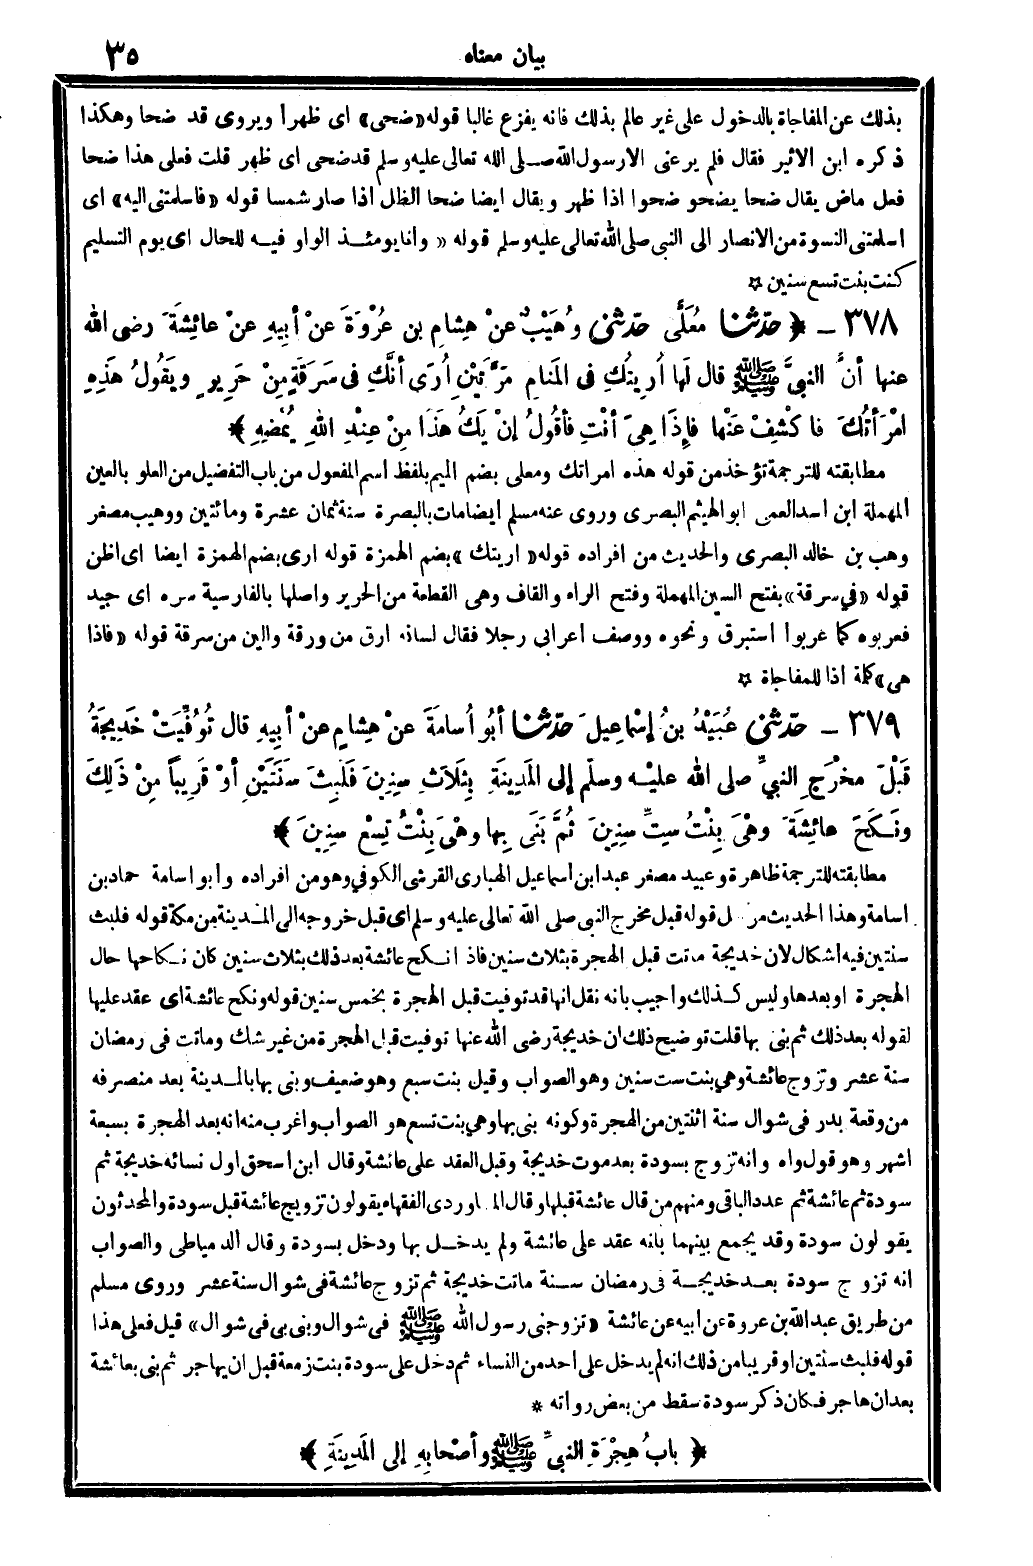 بيان معناه ٣٥
بذلك عن المفاجاة بالدخول على غير عالم بذلك فانه يفزع غالبا قوله «ضحى» اى ظهرا ويروى قد ضحا وهكذا
ذكره ابن الاثير فقال فلم يرعنى الا رسول الله صلى الله تعالى عليه وسلم قد ضحى اى ظهر قلت فعلى هذا ضحا
فعل ماض يقال ضحا يضحو ضحوا اذا ظهر ويقال ايضا ضحا الظل اذا صار شمسا قوله «فاسلمتنى اليه» اى
اسلمتنى النسوة من الانصار الى النبى صلى الله تعالى عليه وسلم قوله «وانا يومئذ الواو فيه للحال اى يوم التسليم
كنت بنت تسع سنين ☆
٣٧٨ ـ ﴿ حَدَّثنا مُعَلًّى حَدَّثَنى وُهَيْبٌ عنْ هِشامِ بنِ عُرْوَةَ عَنْ أبِيهِ عنْ عائِشَةَ رضى الله
عنها أنَّ النبىَّ ﷺ قال لَها أُرِيتُكِ فى المَنامِ مَرَّتَيْنِ أُرَى أنَّكِ فى سَرَقَةٍ مِنْ حَرِيرٍ ويَقُولُ هَذِهِ
امْرَأتُكَ فاكْشِفْ عَنْها فإذَا هِىَ أنْتِ فأقُولُ إنْ يَكُ هَذَا مِنْ عِنْدِ اللهِ يُمْضِهِ ﴾
مطابقته للترجمة تؤخذ من قوله هذه امراتك ومعلى بضم الميم بلفظ اسم المفعول من باب التفضيل من العلو بالعين
المهملة ابن اسد العمى ابو الهيثم البصرى وروى عنه مسلم ايضا مات بالبصرة سنة ثمان عشرة ومائتين ووهيب مصغر
وهب بن خالد البصرى والحديث من افراده قوله «اريتك» بضم الهمزة قوله ارى بضم الهمزة ايضا اى اظن
قوله «في سرقة» بفتح السين المهملة وفتح الراء والقاف وهى القطعة من الحرير واصلها بالفارسية سره اى جيد
فعربوه كما عربوا استبرق ونحوه ووصف اعرابى رجلا فقال لسانه ارق من ورقة والين من سرقة قوله «فاذا
هى» كلمة اذا للمفاجاة ☆
٣٧٩ ـ حَدَّثَنى عُبَيْدُ بنُ إسْماعِيلَ حَدَّثنا أبُو أُسامَةَ عَنْ هِشامٍ عنْ أبِيهِ قال تُوُفِّيَتْ خَدِيجَةُ
قَبْلَ مَخْرَجِ النبيِّ صلى الله عليه وسلّم إلى المَدِينَةِ بِثَلاَثِ سِنِينَ فَلَبِثَ سَنَتَيْنِ أوْ قَرِيباً مِنْ ذَلِكَ
ونَكَحَ عائِشَةَ وهْىَ بِنْتُ سِتِّ سِنِينَ ثُمَّ بَنَى بِها وهْىَ بِنْتُ تِسْعِ سِنِينَ ﴾
مطابقته للترجمة ظاهرة وعبيد مصغر عبد ابن أسماعيل الهبارى القرشى الكوفي وهو من افراده وأبو اسامة حماد بن
اسامة وهذا الحديث مرسل قوله قبل مخرج النبى صلى الله تعالى عليه وسلم اى قبل خروجه الى المدينة من مكة قوله فلبث
سنتين فيه اشكال لان خديجة ماتت قبل الهجرة بثلاث سنين فاذا نكح عائشة بعد ذلك بثلاث سنين كان نكاحها حال
الهجرة او بعدها وليس كذلك واجيب بانه نقل انها قد توفيت قبل الهجرة بخمس سنين قوله ونكح عائشة اى عقد عليها
لقوله بعد ذلك ثم بنى بها قلت توضيح ذلك ان خديجة رضى الله عنها توفيت قبل الهجرة من غير شك وماتت فى رمضان
سنة عشر وتزوج عائشة وهي بنت ست سنين وهو الصواب وقيل بنت سبع وهو ضعيف وبنى بها بالمدينة بعد منصرفه
من وقعة بدر فى شوال سنة اثنتين من الهجرة وكونه بنى بها وهى بنت تسع هو الصواب واغرب منه انه بعد الهجرة بسبعة
اشهر وهو قول واه وانه تزوج بسودة بعد موت خديجة وقبل العقد على عائشة وقال ابن اسحق اول نسائه خديجة ثم
سودة ثم عائشة ثم عدد الباقى ومنهم من قال عائشة قبلها وقال الماوردى الفقهاء يقولون تزويج عائشة قبل سودة والمحدثون
يقولون سودة وقد يجمع بينهما بانه عقد على عائشة ولم يدخل بها ودخل بسودة وقال الدمياطى والصواب
انه تزوج سودة بعد خديجة فى رمضان سنة ماتت خديجة ثم تزوج عائشة فى شوال سنة عشر وروى مسلم
من طريق عبد الله بن عروة عن ابيه عن عائشة «تزوجنى رسول الله ﷺ فى شوال وبنى بى فى شوال» قيل فعلى هذا
قوله فلبث سنتين او قريبا من ذلك انه لم يدخل على احد من النساء ثم دخل على سودة بنت زمعة قبل ان يهاجر ثم بنى بعائشة
بعد ان هاجر فكان ذكر سودة سقط من بعض رواته *
﴿ بابُ هِجْرَةِ النبيِّ ﷺ وأصْحابِهِ إلى المَدِينَةِ ﴾